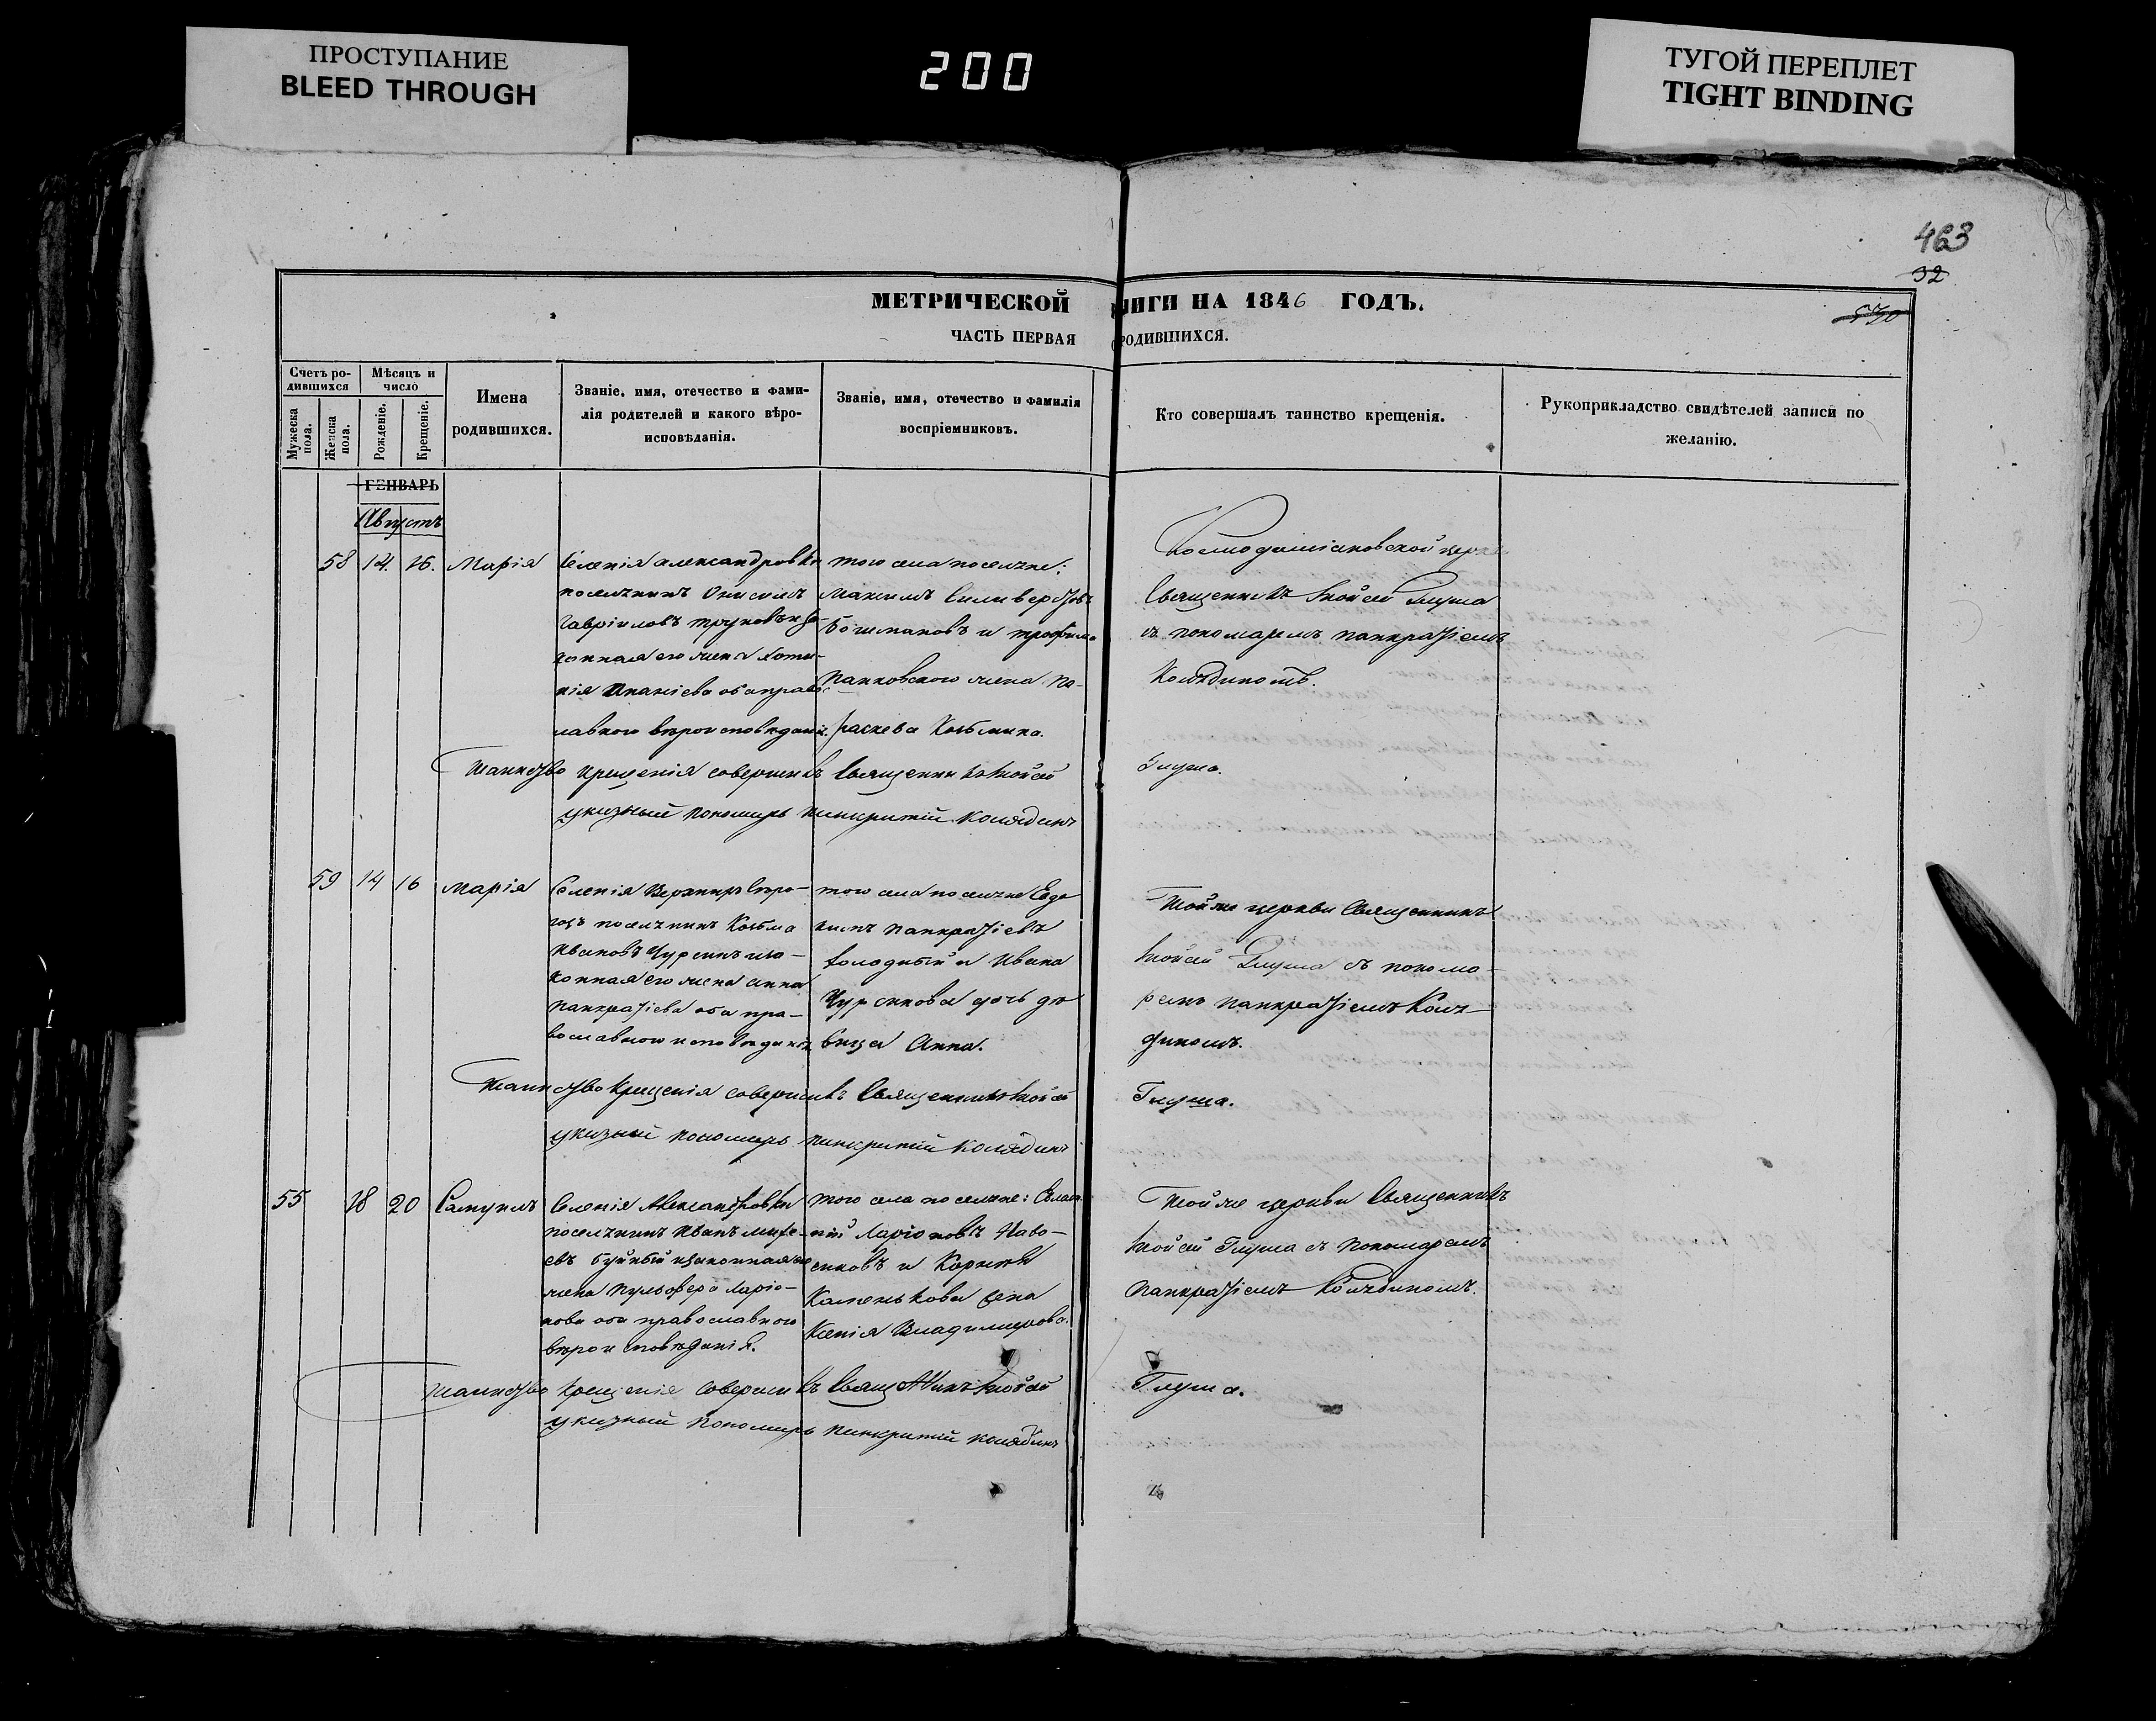 ПРОСТУПАНИЕ
BLEED THROUGH
200
ТУГОЙ ПЕРЕПЛЕТ
TIGHT BINDING
463
32
МЕТРИЧЕСКОЙ НИГИ НА 1846 ГОДЪ.
ЧАСТЬ ПЕРВАЯ РОДИВШИХСЯ.
Счетъ ро-
дившихся
Мужеска пола.
Женска пола.
Мѣсяцъ и
число
Рожденіе.
Крещеніе.
Имена
родившихся.
Званіе, имя, отечество и фами-
лія родителей и какого вѣро-
исповѣданія.
Званіе, имя, отечество и фамилія
воспріемниковъ.
Кто совершалъ таинство крещенія.
Рукоприкладство свидѣтелей записи по
желанію.
ГЕНВАРЬ
Августъ
58 14. 16. Марія
Селенія Александровки
поселянинъ Онисимъ
Гавріиловъ
конная его жена
обаправо
лавного вѣроисповѣданія.
того села поселяне:
Максимъ Силиверстовъ
и Трофима
Панковского жена Па-
раскева Козьмина.
Космодаміановской церк
Священникъ Глуша
съ пономаремъ Панкратіемъ
Колядиномъ.
Таинство крещенія совершилъ Священникъ
Глуша.
указный пономарь Панкратій Колядинъ
59 14 16 Марія
Селенія
поселянинъ Козьма
Ивановъ
конная его жена Анна
Панкратіева оба пра-
вославного исповѣданія
того села поселяне Евдо
кимъ Панкратіевъ
Холодный и Ивана
Чурсинова дочь дѣ
вица Анна.
Той же церкви Священникъ
Глуша съ понома-
ремъ Панкратіемъ Коля-
диномъ.
Таинство крещенія совершилъ Священникъ
Глуша.
указный пономарь Панкратій Колядинъ
55 18 20 Самуилъ
Селенія Александровки
поселянинъ Иванъ
евъ Буйный изаконная его
жена Пульхера Ларіо-
нова оба православного
вѣроисповѣданія.
того села поселяне:
Ларіоновъ
и Корнѣя
Каменькова жена
Ксенія Владимирова.
Той же церкви Священникъ
Глуша съ пономаремъ
Панкратіемъ Колядиномъ.
Таинство крещенія совершилъ
Глуша.
указный пономарь Панкратій Колядинъ